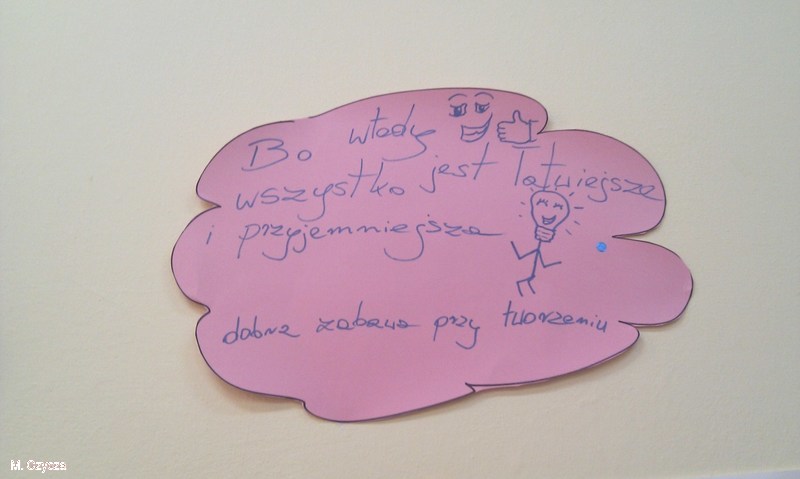 Bo wtedy
wszystko jest łatwiejsze
i przyjemniejsze
dobra zabawa przy tworzeniu
M. Czycza